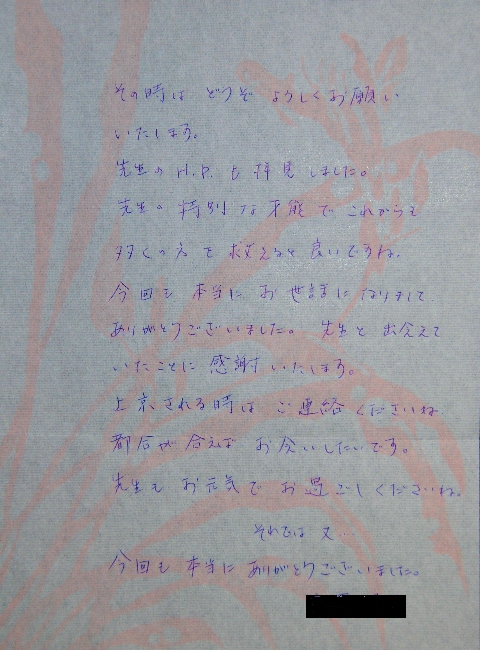 その時は どうぞ よろしくお願い
いたします。
先生の H.P. も 拝見 しました。
先生の 特別な才能で これからも
多くの方を 救えると 良いですね。
今回も 本当に お世話になりまして
ありがとうございました。 先生と 出会えて
いたことに 感謝いたします。
上京される時は ご連絡くださいね
都合が合えば お会いしたいです。
先生も お元気で お過ごしくださいね。
それでは 又…
今回も 本当に ありがとうございました。